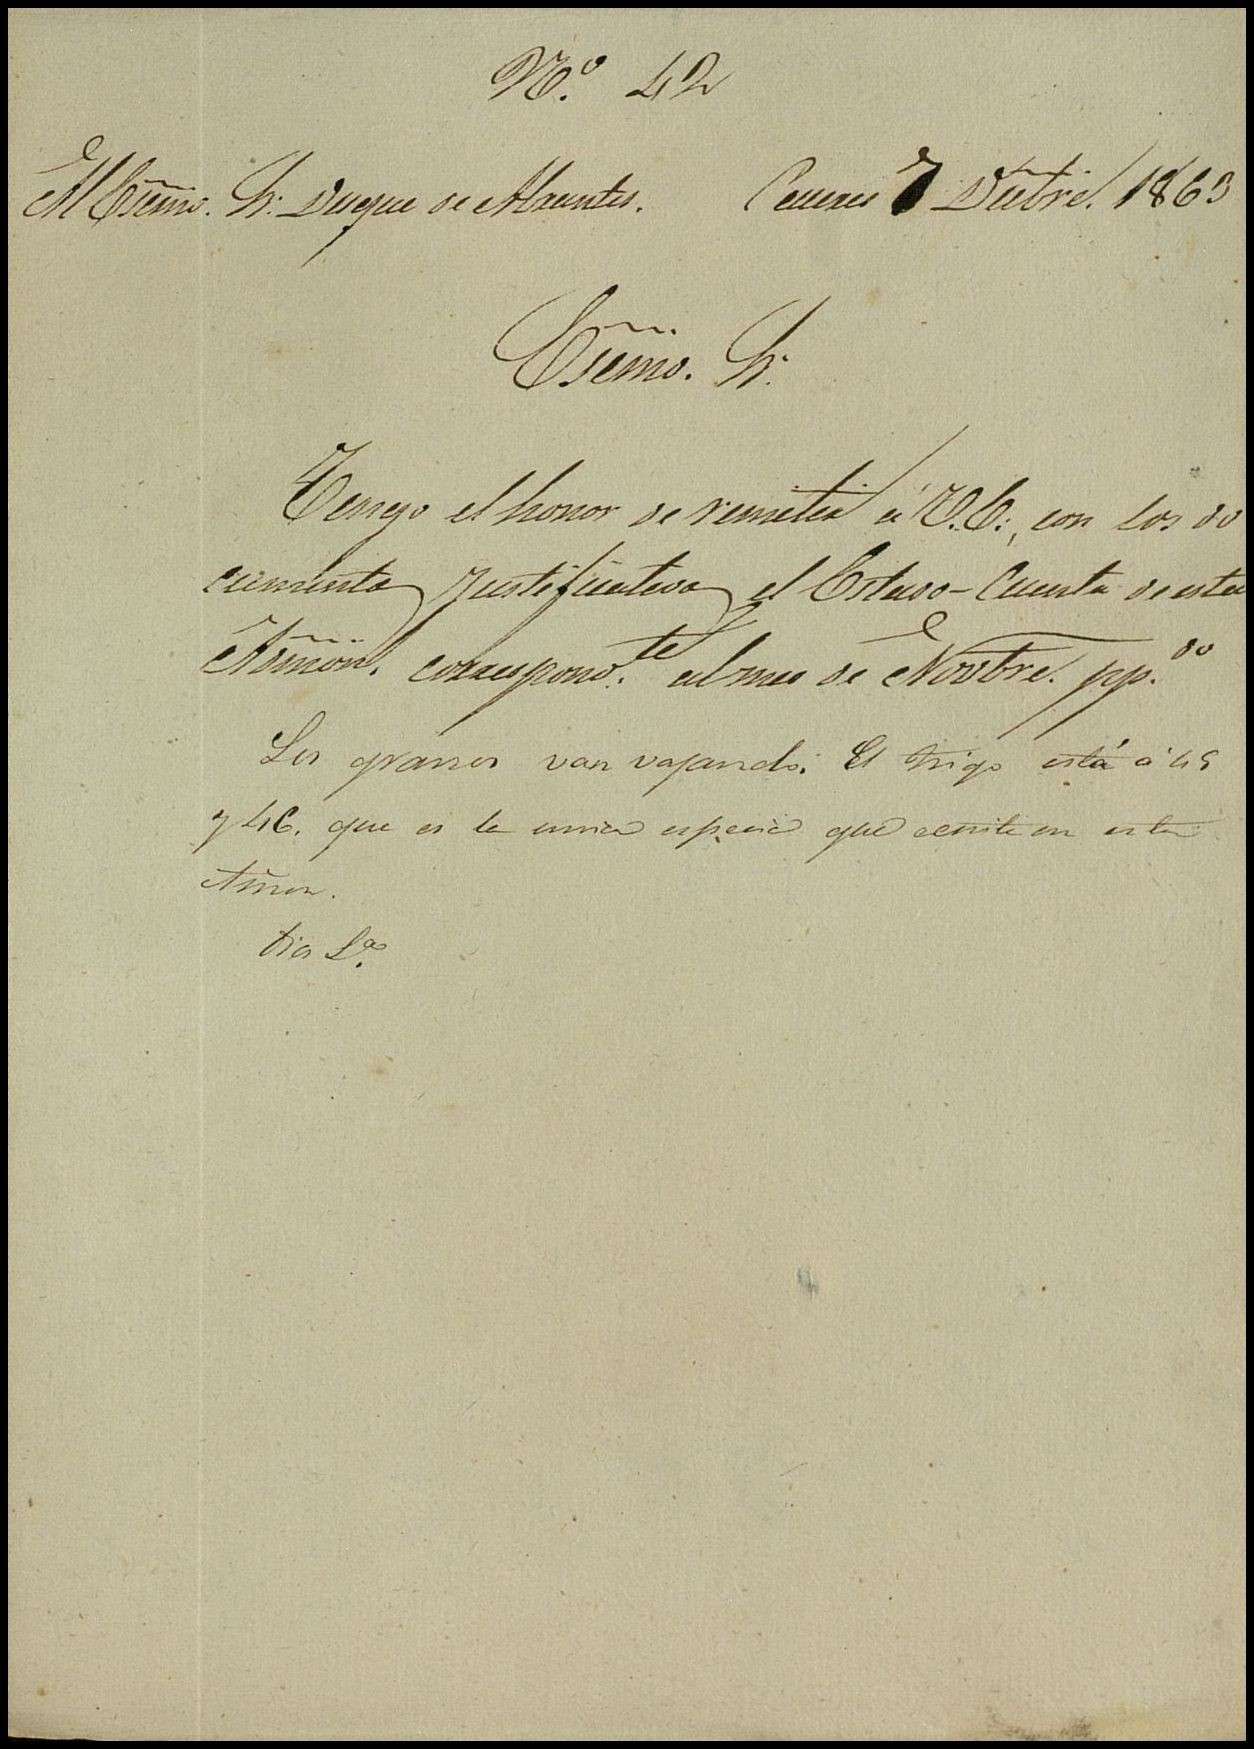 Nº. 42
Al Esẽmo. Sr. Duque de Abrantes. Caceres 7 Dicbre. 1863
Esẽmo. Sr.
Tengo el honor de remitir á V.E., con los do
cumentos justificativos el Estado-Cuenta de esta
Admon. correspond.te al mes de Novbre. pp.do
Los granos van vajando. El trigo está á 45
y 46. que es la unica especie que ecsite en esta
Admon.
Dios &ª.